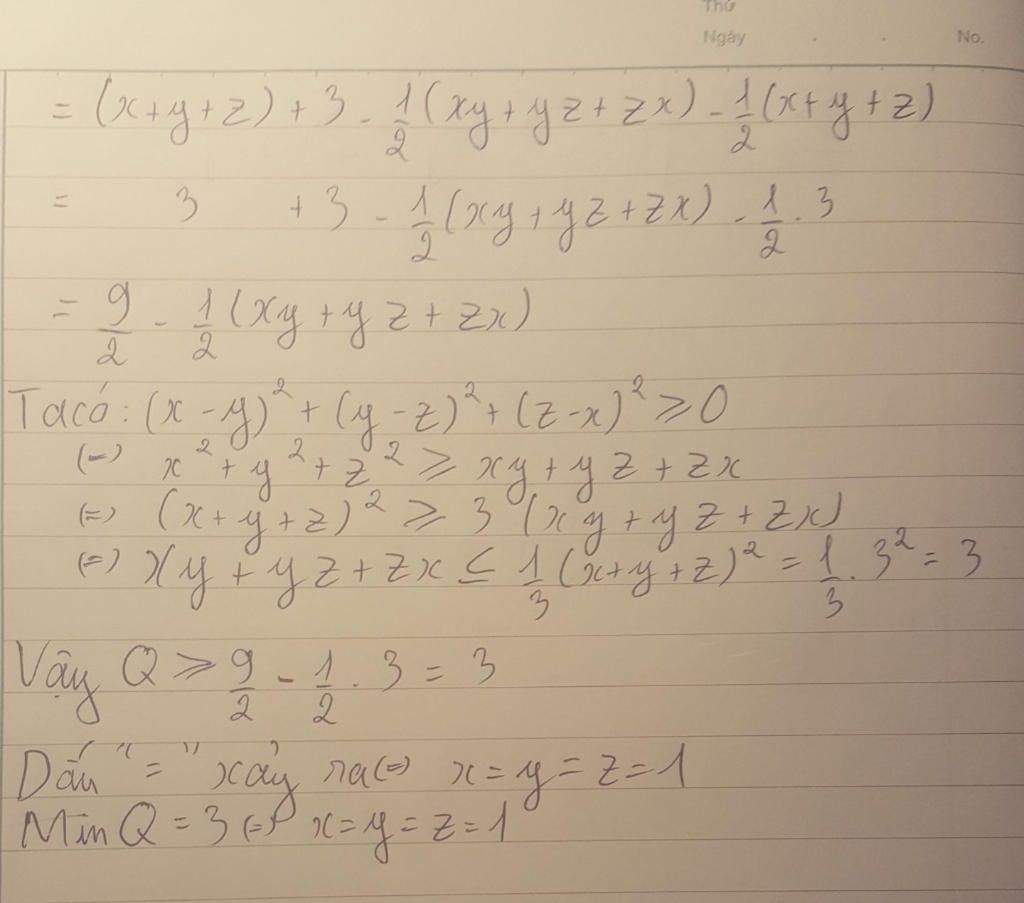 Thứ
Ngày . . No.
= (x+y+z) + 3 - 1/2 (xy + yz + zx) - 1/2 (x+y+z)
= 3 + 3 - 1/2 (xy + yz + zx) - 1/2 . 3
= 9/2 - 1/2 (xy + yz + zx)
Ta có : (x - y)² + (y - z)² + (z - x)² ≥ 0
(=) x² + y² + z² ≥ xy + yz + zx
(=) (x + y + z)² ≥ 3 (xy + yz + zx)
(=) xy + yz + zx ≤ 1/3 (x+y+z)² = 1/3 . 3² = 3
Vậy Q ≥ 9/2 - 1/2 . 3 = 3
Dấu "=" xảy ra (=) x = y = z = 1
Min Q = 3 (=) x = y = z = 1